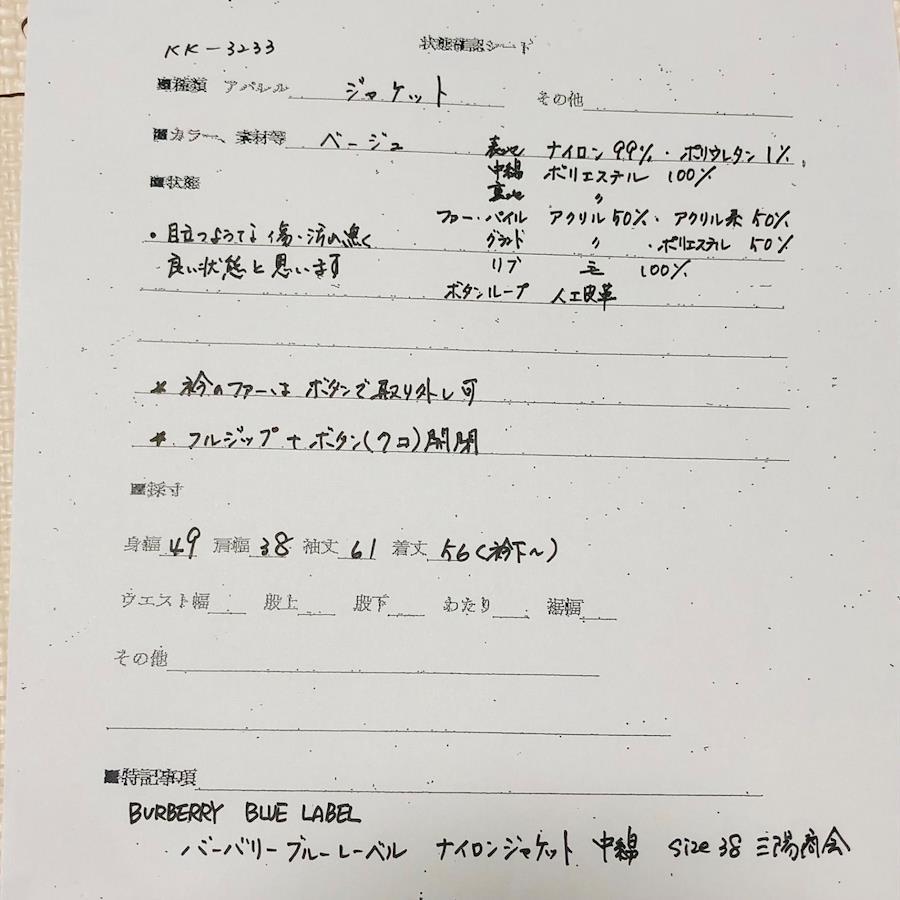 KK-3233
状態確認シート
■種類 アパレル ジャケット その他
■カラー、素材等 ベージュ 表地 ナイロン 99%・ポリウレタン 1%
中綿 ポリエステル 100%
■状態 裏地 〃
ファー・パイル アクリル 50%・アクリル系 50%
・目立つような傷・汚れ無く グランド 〃 ・ポリエステル 50%
良い状態と思います リブ 毛 100%
ボタンループ 人工皮革
* 衿のファーは ボタンで取り外し可
* フルジップ+ボタン(7コ)開閉
■採寸
身幅 49 肩幅 38 袖丈 61 着丈 56(衿下~)
ウエスト幅 股上 股下 わたり 裾幅
その他
■特記事項
BURBERRY BLUE LABEL
バーバリーブルーレーベル ナイロンジャケット 中綿 size 38 三陽商会